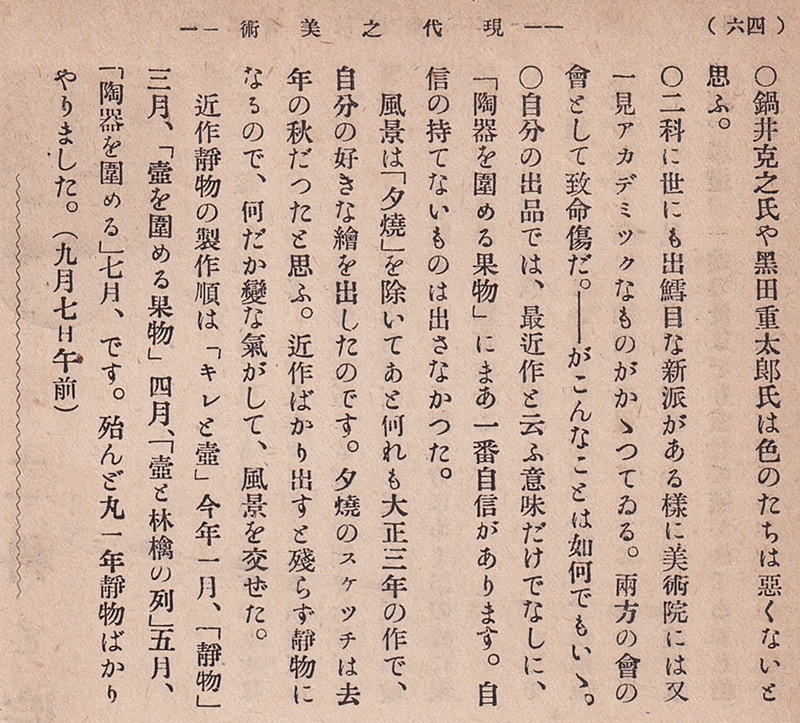 (四六)
――現代之美術――
〇鍋井克之氏や黑田重太郎氏は色のたちは惡くないと
思ふ。
〇二科に世にも出鱈目な新派がある樣に美術院には又
一見アカデミックなものがかゝつてゐる。兩方の會の
會として致命傷だ。――がこんなことは如何でもいゝ。
〇自分の出品では、最近作と云ふ意味だけでなしに、
「陶器を圍める果物」にまあ一番自信があります。自
信の持てないものは出さなかつた。
風景は「夕燒」を除いてあと何れも大正三年の作で、
自分の好きな繪を出したのです。夕燒のスケッチは去
年の秋だつたと思ふ。近作ばかり出すと殘らず靜物に
なるので、何だか變な氣がして、風景を交ぜた。
近作靜物の製作順は「キレと壺」今年一月、「靜物」
三月、「壺を圍める果物」四月、「壺と林檎の列」五月、
「陶器を圍める」七月、です。殆んど丸一年靜物ばかり
やりました。(九月七日午前)